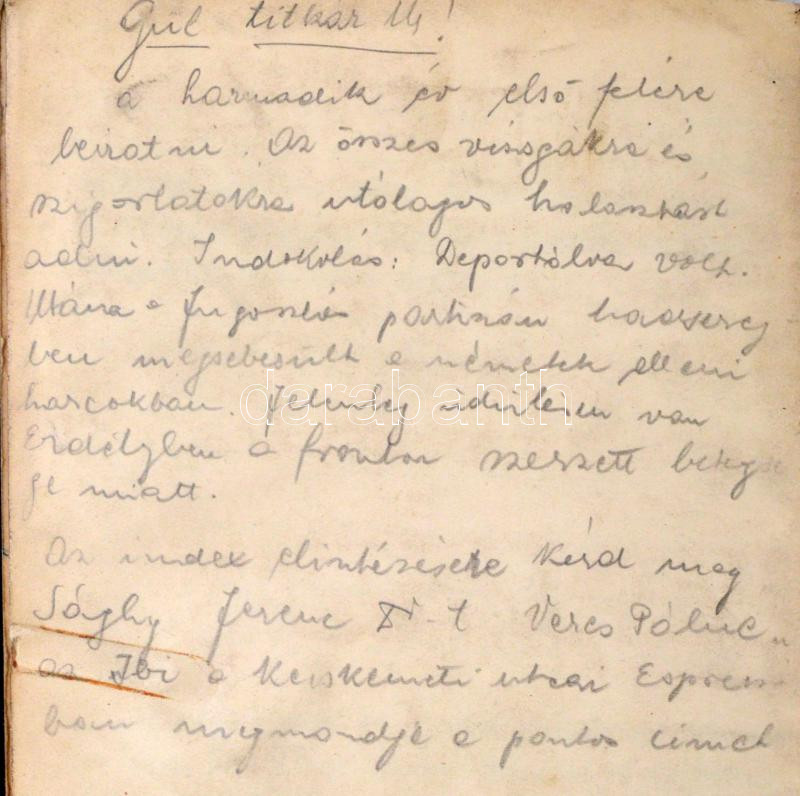 Gul titkár Úr!
a harmadik év első felére
beiratni. Az összes vizsgákra és
szigorlatokra utólagos halasztást
adni. Indokolás: Deportálva volt.
Utána a Jugoszláv partizán hadsereg
ben megsebesült a németek elleni
harcokban. Jelenleg üdülésen van
Erdélyben a fronton szerzett betegsé
ge miatt.
darabanth.com
Az index elintézésére kérd meg
Sághy Ferenc Veres Pálné u.
az Ibi a Kecskeméti utcai Espresso
ban megmondja a pontos címét